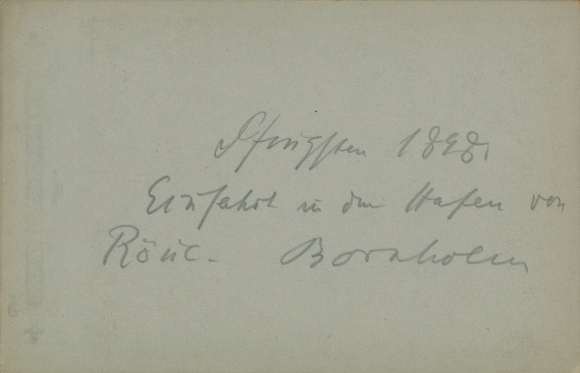 Pfingsten 1898.
Einfahrt in den Hafen von
Röne. Bornholm